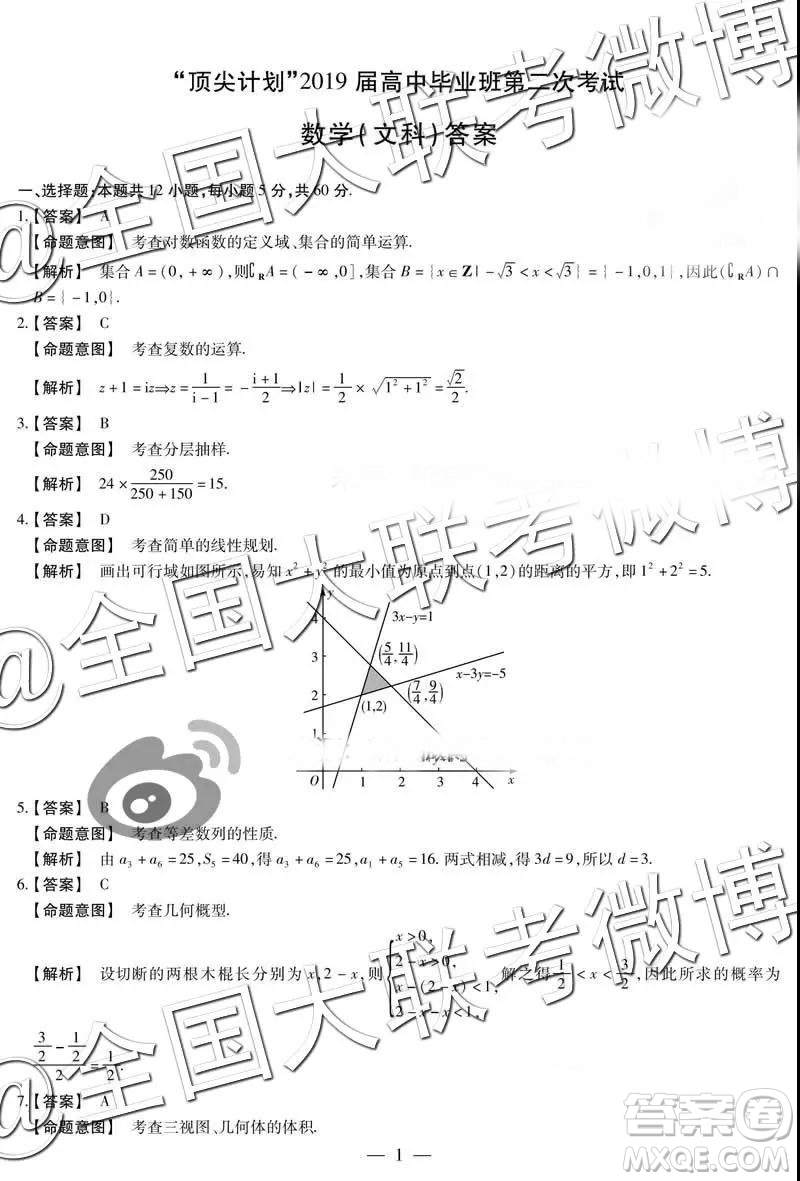 “顶尖计划”2019届高中毕业班第二次考试
数学(文科)答案
一、选择题:本题共12小题,每小题5分,共60分.
1.【答案】 A
【命题意图】 考查对数函数的定义域、集合的简单运算.
【解析】 集合A=(0,+∞),则∁RA=(-∞,0],集合B={x∈Z|-√3<x<√3}={-1,0,1},因此(∁RA)∩
B={-1,0}.
2.【答案】 C
【命题意图】 考查复数的运算.
【解析】 z+1=iz⇒z=1/(i-1)=-(i+1)/2⇒|z|=1/2×√(1²+1²)=√2/2.
3.【答案】 B
【命题意图】 考查分层抽样.
【解析】 24×250/(250+150)=15.
4.【答案】 D
【命题意图】 考查简单的线性规划.
【解析】 画出可行域如图所示,易知x²+y²的最小值为原点到点(1,2)的距离的平方,即1²+2²=5.
y
4
3x-y=1
3
(5/4,11/4)
x-3y=-5
2
(7/4,9/4)
(1,2)
1
O 1 2 3 4 x
5.【答案】 B
【命题意图】 考查等差数列的性质.
【解析】 由a₃+a₆=25,S₅=40,得a₃+a₆=25,a₁+a₅=16.两式相减,得3d=9,所以d=3.
6.【答案】 C
【命题意图】 考查几何概型.
【解析】 设切断的两根木棍长分别为x,2-x,则{x>0, 2-x>0, x-(2-x)<1, 2-x-x<1, 解之得1/2<x<3/2,因此所求的概率为
(3/2-1/2)/2=1/2.
7.【答案】 A
【命题意图】 考查三视图、几何体的体积.
— 1 —
@全国大联考微博
@全国大联考微博
@全国大联考微博
答案圈
MXQE.COM